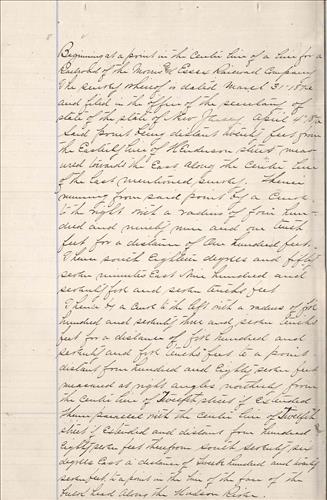 Beginning at a point in the Centre line of a line for a
Railroad of the Morris & Essex Railroad Company
the survey whereof is dated March 31st 18
and filed in the office of the secretary of
state of the state of New Jersey April
said point being distant twenty feet from
the Easterly line of Henderson street meas-
ured towards the East along the Centre line
of the last mentioned survey. Thence
running from said point by a Curve
to the right with a radius of four hun-
dred and ninety nine and one tenth
feet for a distance of One hundred feet.
Thence south Eighteen degrees and fifty
seven minutes East nine hundred and
seventy five and seven tenths feet
Thence by a Curve to the left with a radius of five
hundred and seventy three and seven tenths
feet for a distance of five hundred and
seventy and five tenths feet to a point
distant four hundred and Eighty seven feet
measured at right angles northerly from
the centre line of Twelfth street if extended
thence parallel with the centre line of Twelfth
street if Extended and distant four hundred
Eighty seven feet therefrom south seventy six
degrees East a distance of twelve hundred and twenty
seven feet to a point in the line of the face of the
bulk head along the Hudson River